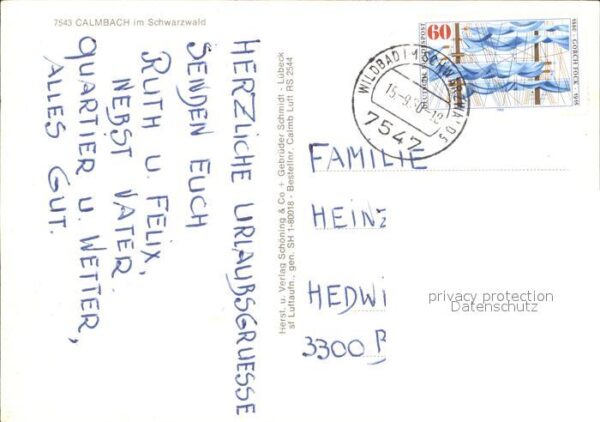 7543 CALMBACH im Schwarzwald
HERZLICHE URLAUBSGRUESSE
SENDEN EUCH
RUTH U. FELIX,
NEBST VATER.
QUARTIER U. WETTER,
ALLES GUT.
Herst. u. Verlag Schöning & Co + Gebrüder Schmidt · Lübeck
st Luftaufn., gen. SH 1-80018 - Bestellnr. Calmb Luft RS 2544
60
DEUTSCHE BUNDESPOST
GORCH FOCK
WILDBAD I · 1 SCHWARZWALD
7547
FAMILIE
HEINZ
HEDWI
3300 B
privacy protection
Datenschutz